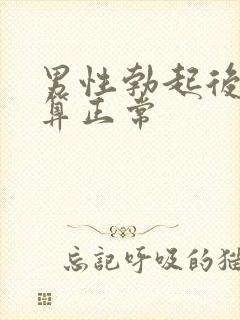 男性勃起後
算正常
忘記呼吸的猫